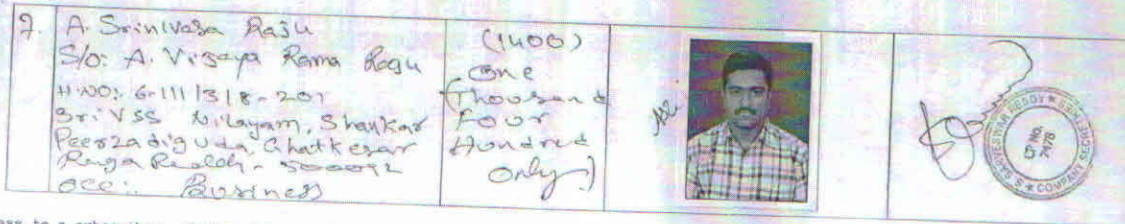 7. A. Srinivasa Raju
S/o: A. Vijaya Rama Raju
H.NO: 6-111/3/8-201
Sri VSS Nilayam, Shankar
Peerzadiguda, Ghatkesar
Ranga Reddy -
occ:. Business
(1400)
(One
Thousand
Four
Hundred
Only)
S SARVESWAR REDDY * COMPANY SECRETARIES *
CP NO.
7478